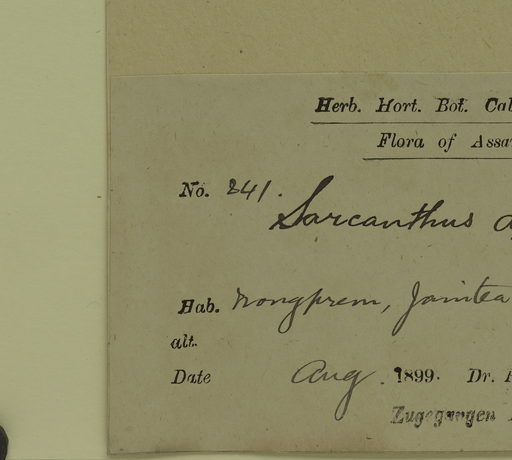 Herb. Hort. Bot. Cal
Flora of Assa
No. 241.
Sarcanthus
Hab. Nongprem, Jaintea
alt.
Date Aug. 1899. Dr.
Zugegangen